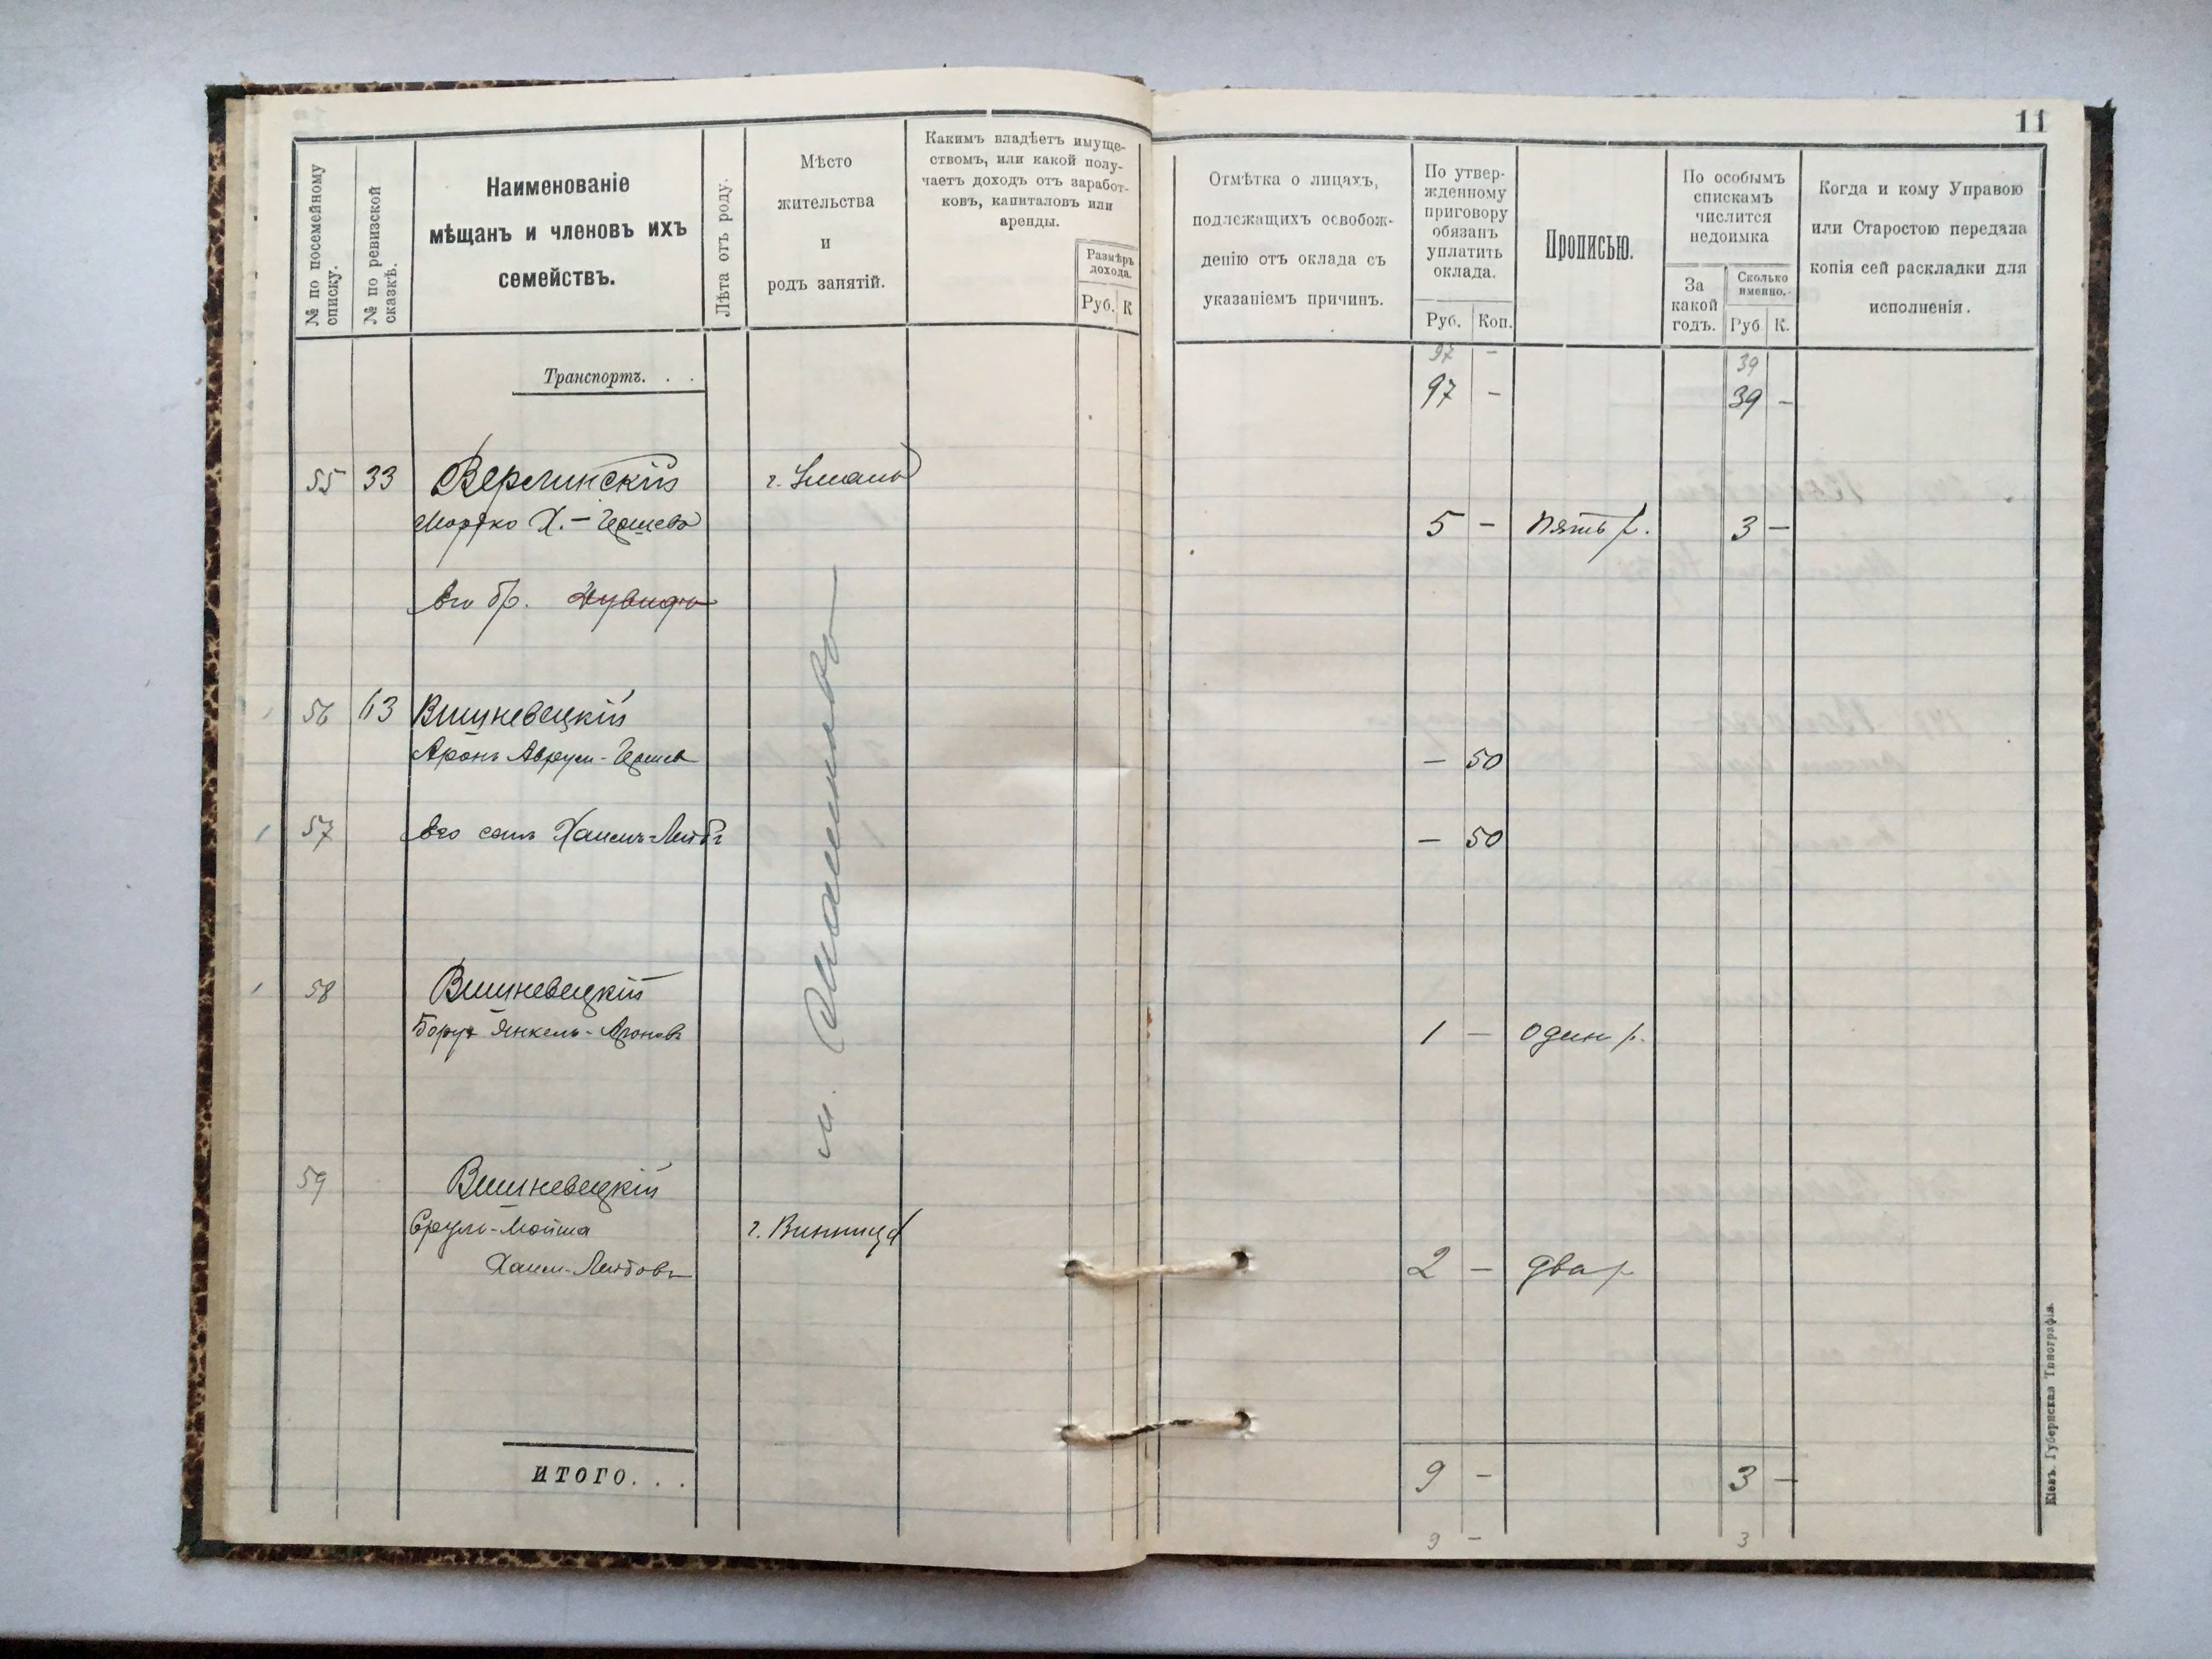 11
№ по посемейному списку.
№ по ревизской сказкѣ.
Наименованіе
мѣщанъ и членовъ ихъ
семействъ.
Лѣта отъ роду.
Мѣсто
жительства
и
родъ занятій.
Какимъ владѣетъ имуще-
ствомъ, или какой полу-
чаетъ доходъ отъ заработ-
ковъ, капиталовъ или
аренды.
Размѣръ
дохода.
Руб. К
Отмѣтка о лицахъ,
подлежащихъ освобож-
денію отъ оклада съ
указаніемъ причинъ.
По утвер-
жденному
приговору
обязанъ
уплатить
оклада.
Руб. Коп.
Прописью.
По особымъ
спискамъ
числится
недоимка
За
какой
годъ.
Сколько
именно.
Руб К.
Когда и кому Управою
или Старостою передана
копія сей раскладки для
исполненія.
97 - 39
Транспортъ. . . 97 - 39 -
55 33 Верлинскій г. Умань
Мортко Х.-Гершевъ 5 - пять р. 3 -
его бр. Дувидъ
56 63 Вишневецкій
Аронъ Аврум-Гершев - 50
57 его сынъ Хаимъ-Лейбъ - 50
м.
58 Вишневецкій
Борух Янкель-Ароновъ 1 - один р.
59 Вишневецкій
Срул-Мойша г. Винница
Хаим-Лейбовъ 2 - два р
ИТОГО. . . 9 - 3 -
9 - 3
Кіевъ. Губернская Типографія.